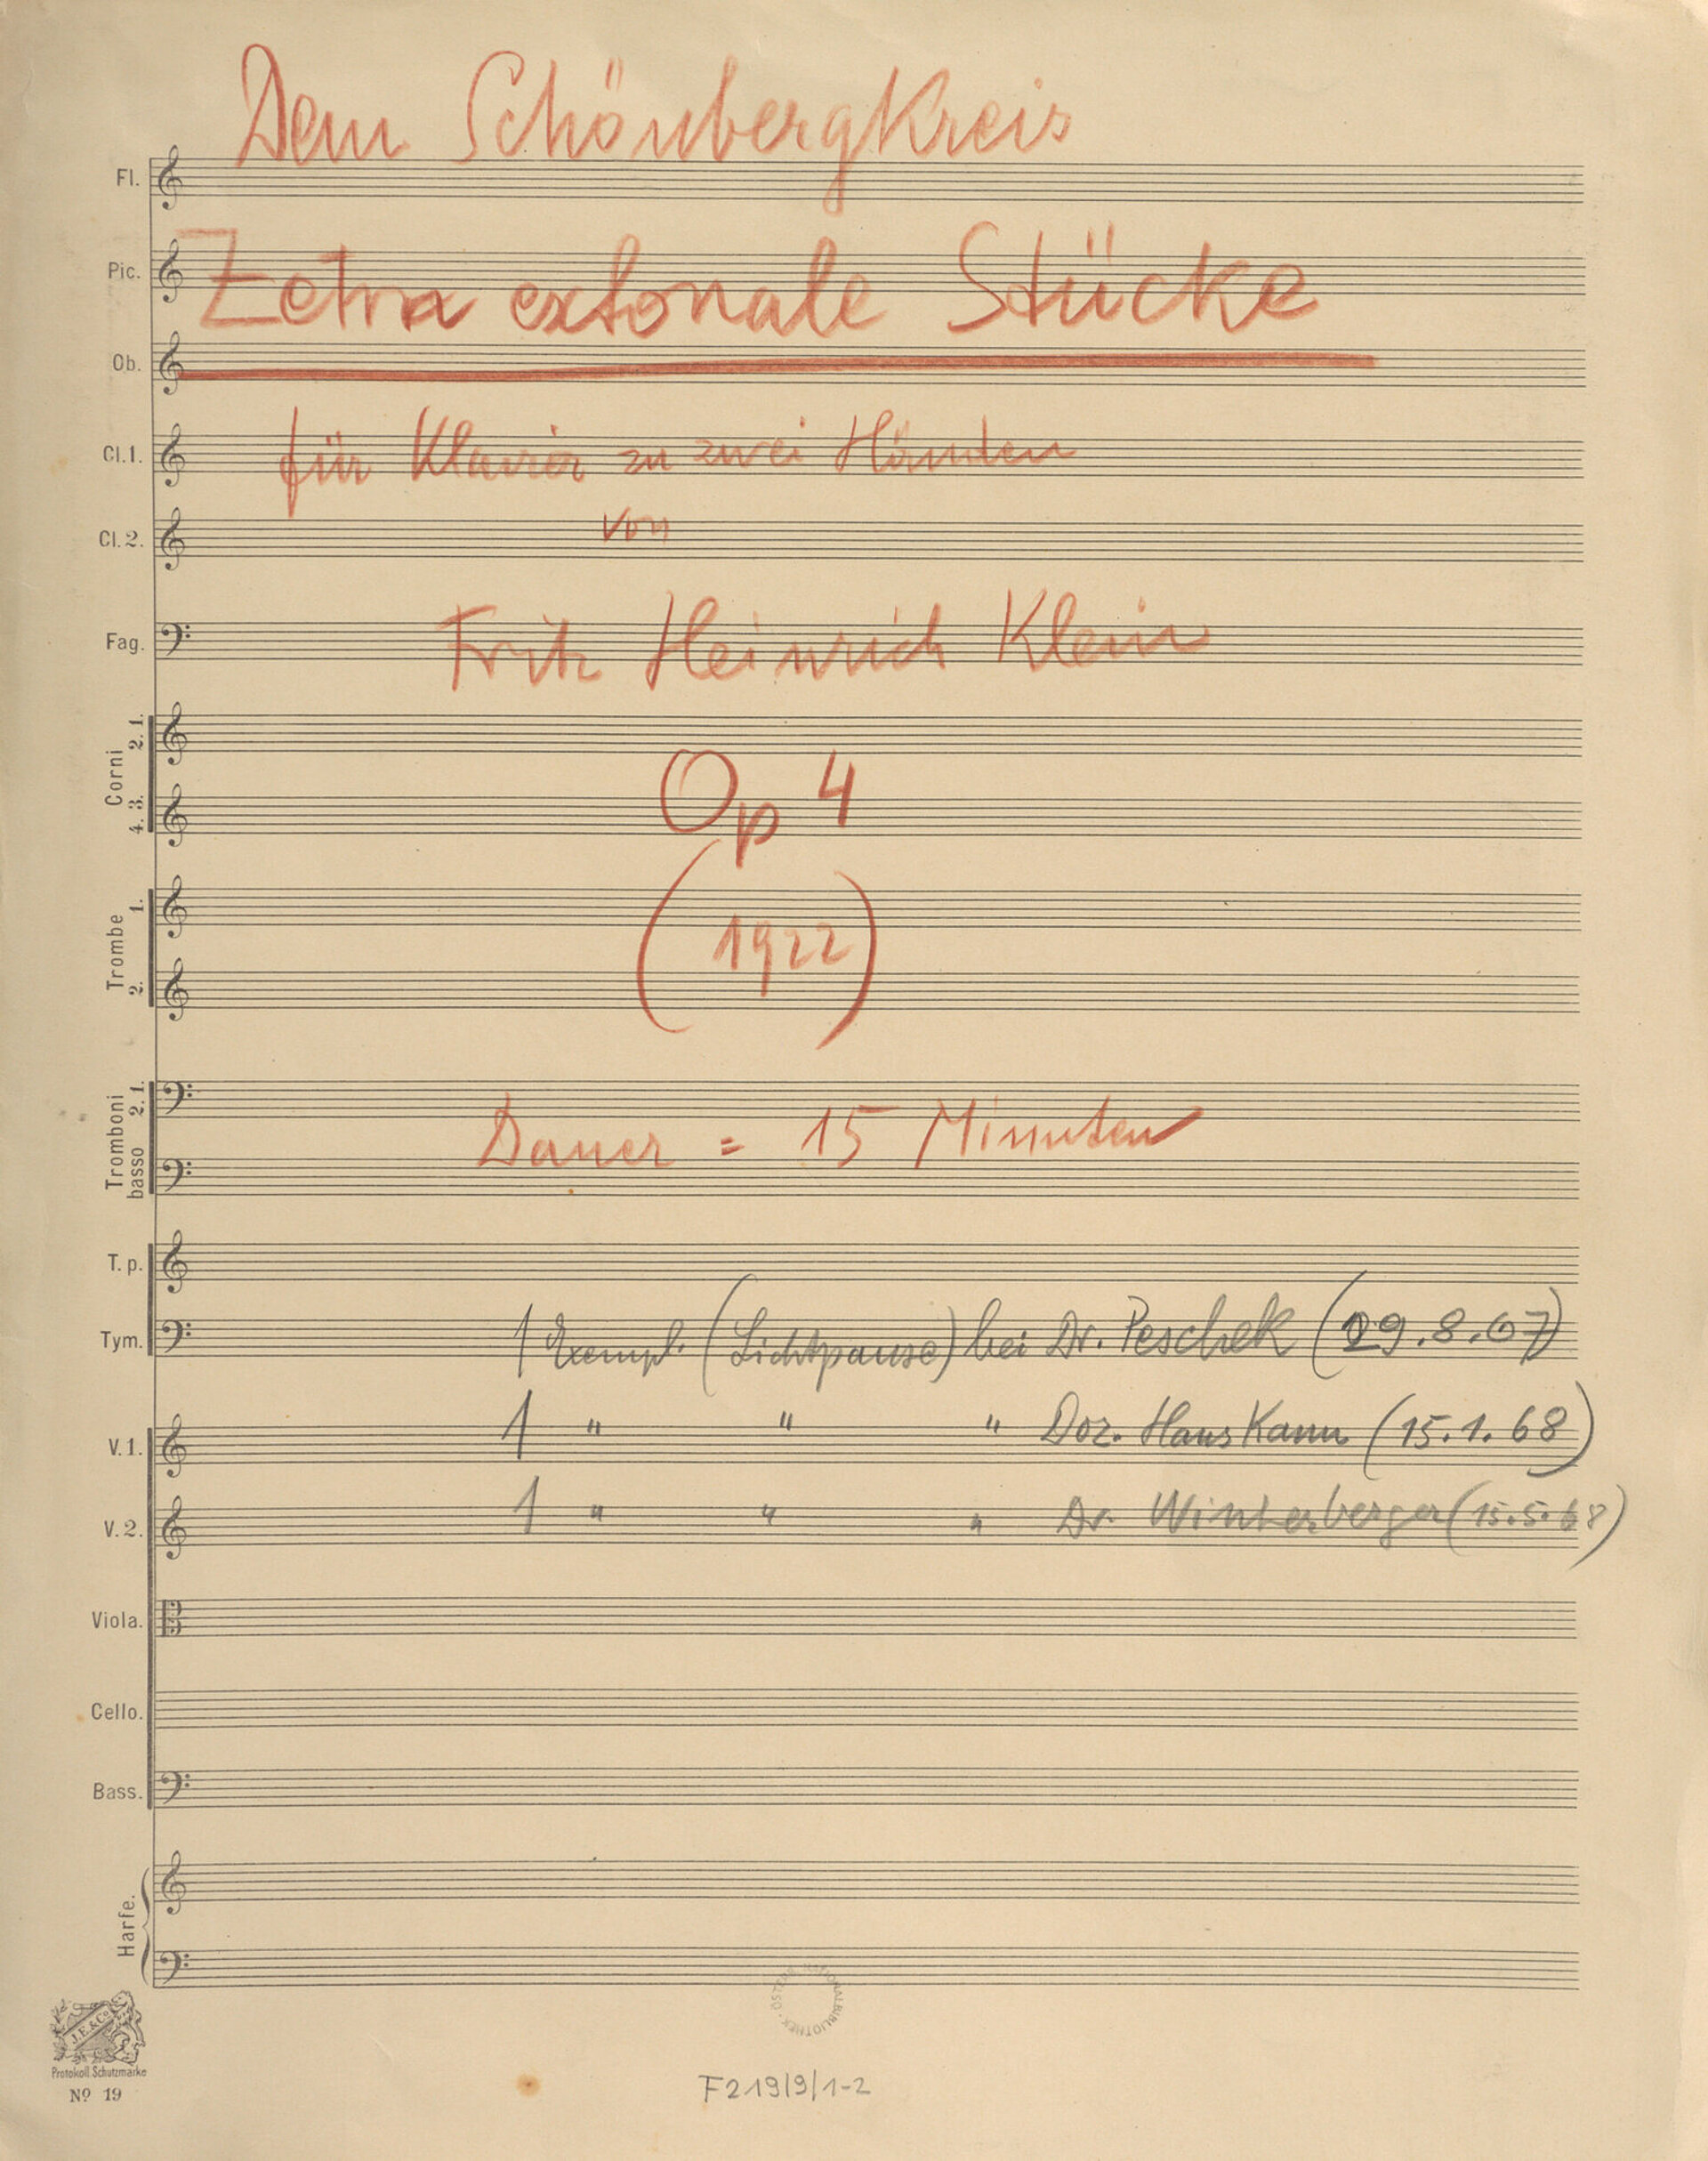 Dem Schönbergkreis
Fl.
Pic.
Zetra extonale Stücke
Ob.
für Klavier zu zwei Händen
Cl.1.
von
Cl.2.
Fritz Heinrich Klein
Fag.
Corni
2. 1.
4. 3.
Op 4
(1922)
Trombe
1.
2.
Tromboni
2. 1.
basso
Dauer = 15 Minuten
T. p.
Tym.
1 Exempl. (Lichtpause) bei Dr. Peschek (29.8.67)
V. 1.
1 " " " Doz. Hans Kann (15.1.68)
V. 2.
1 " " " Dr. Winterberger (15.5.68)
Viola.
Cello.
Bass.
Harfe.
J.E.&Co
Protokoll. Schutzmarke
No 19
ÖSTERR. NATIONALBIBLIOTHEK
F219/9/1-2